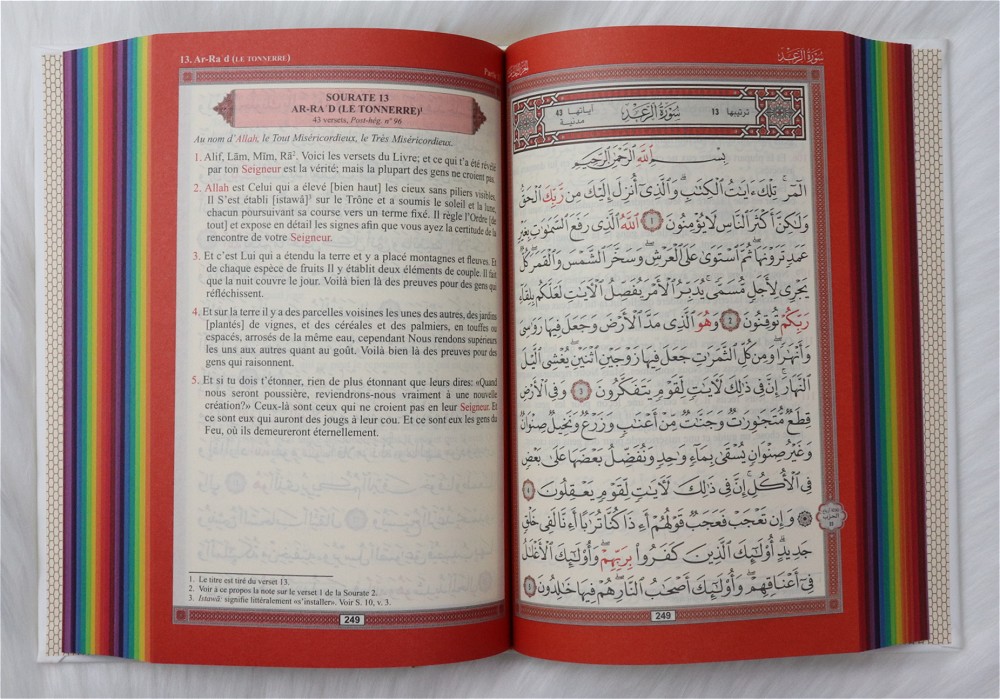 13. Ar-Ra d (LE TONNERRE)
SOURATE 13
AR-RA'D (LE TONNERRE)¹
43 versets, Post-hég. n° 96
Au nom d'Allah, le Tout Miséricordieux, le Très Miséricordieux.
1. Alif, Lâm, Mîm, Râ². Voici les versets du Livre; et ce qui t'a été révélé
par ton Seigneur est la vérité; mais la plupart des gens ne croient pas.
2. Allah est Celui qui a élevé [bien haut] les cieux sans piliers visibles,
Il S'est établi [istawâ]³ sur le Trône et a soumis le soleil et la lune,
chacun poursuivant sa course vers un terme fixé. Il règle l'Ordre [de
tout] et expose en détail les signes afin que vous ayez la certitude de la
rencontre de votre Seigneur.
3. Et c'est Lui qui a étendu la terre et y a placé montagnes et fleuves. Et
de chaque espèce de fruits Il y établit deux éléments de couple. Il fait
que la nuit couvre le jour. Voilà bien là des preuves pour des gens qui
réfléchissent.
4. Et sur la terre il y a des parcelles voisines les unes des autres, des jardins
[plantés] de vignes, et des céréales et des palmiers, en touffes ou
espacés, arrosés de la même eau, cependant Nous rendons supérieurs
les uns aux autres quant au goût. Voilà bien là des preuves pour des
gens qui raisonnent.
5. Et si tu dois t'étonner, rien de plus étonnant que leurs dires: «Quand
nous seront poussière, reviendrons-nous vraiment à une nouvelle
création?» Ceux-là sont ceux qui ne croient pas en leur Seigneur. Et
ce sont eux qui auront des jougs à leur cou. Et ce sont eux les gens du
Feu, où ils demeureront éternellement.
1. Le titre est tiré du verset 13.
2. Voir à ce propos la note sur le verset 1 de la Sourate 2.
3. Istawâ: signifie littéralement «s'installer». Voir S. 10, v. 3.
249
سُورَةُ الرَّعْدِ
ترتيبها 13 سُورَةُ الرَّعْدِ آياتها 43
مدنية
بِسْمِ ٱللَّهِ ٱلرَّحْمَٰنِ ٱلرَّحِيمِ
الٓمٓر ۚ تِلْكَ ءَايَٰتُ ٱلْكِتَٰبِ ۗ وَٱلَّذِىٓ أُنزِلَ إِلَيْكَ مِن رَّبِّكَ ٱلْحَقُّ
وَلَٰكِنَّ أَكْثَرَ ٱلنَّاسِ لَا يُؤْمِنُونَ ١ ٱللَّهُ ٱلَّذِى رَفَعَ ٱلسَّمَٰوَٰتِ بِغَيْرِ
عَمَدٍ تَرَوْنَهَا ۖ ثُمَّ ٱسْتَوَىٰ عَلَى ٱلْعَرْشِ ۖ وَسَخَّرَ ٱلشَّمْسَ وَٱلْقَمَرَ ۖ كُلٌّ
يَجْرِى لِأَجَلٍ مُّسَمًّى ۚ يُدَبِّرُ ٱلْأَمْرَ يُفَصِّلُ ٱلْءَايَٰتِ لَعَلَّكُم بِلِقَآءِ
رَبِّكُمْ تُوقِنُونَ ٢ وَهُوَ ٱلَّذِى مَدَّ ٱلْأَرْضَ وَجَعَلَ فِيهَا رَوَٰسِىَ
وَأَنْهَٰرًا ۖ وَمِن كُلِّ ٱلثَّمَرَٰتِ جَعَلَ فِيهَا زَوْجَيْنِ ٱثْنَيْنِ ۖ يُغْشِى ٱلَّيْلَ
ٱلنَّهَارَ ۚ إِنَّ فِى ذَٰلِكَ لَءَايَٰتٍ لِّقَوْمٍ يَتَفَكَّرُونَ ٣ وَفِى ٱلْأَرْضِ
قِطَعٌ مُّتَجَٰوِرَٰتٌ وَجَنَّٰتٌ مِّنْ أَعْنَٰبٍ وَزَرْعٌ وَنَخِيلٌ صِنْوَانٌ
وَغَيْرُ صِنْوَانٍ يُسْقَىٰ بِمَآءٍ وَٰحِدٍ وَنُفَضِّلُ بَعْضَهَا عَلَىٰ بَعْضٍ
فِى ٱلْأُكُلِ ۚ إِنَّ فِى ذَٰلِكَ لَءَايَٰتٍ لِّقَوْمٍ يَعْقِلُونَ ٤
۞ وَإِن تَعْجَبْ فَعَجَبٌ قَوْلُهُمْ أَءِذَا كُنَّا تُرَٰبًا أَءِنَّا لَفِى خَلْقٍ
جَدِيدٍ ۗ أُو۟لَٰٓئِكَ ٱلَّذِينَ كَفَرُوا۟ بِرَبِّهِمْ ۖ وَأُو۟لَٰٓئِكَ ٱلْأَغْلَٰلُ
فِىٓ أَعْنَاقِهِمْ ۖ وَأُو۟لَٰٓئِكَ أَصْحَٰبُ ٱلنَّارِ ۖ هُمْ فِيهَا خَٰلِدُونَ ٥
249